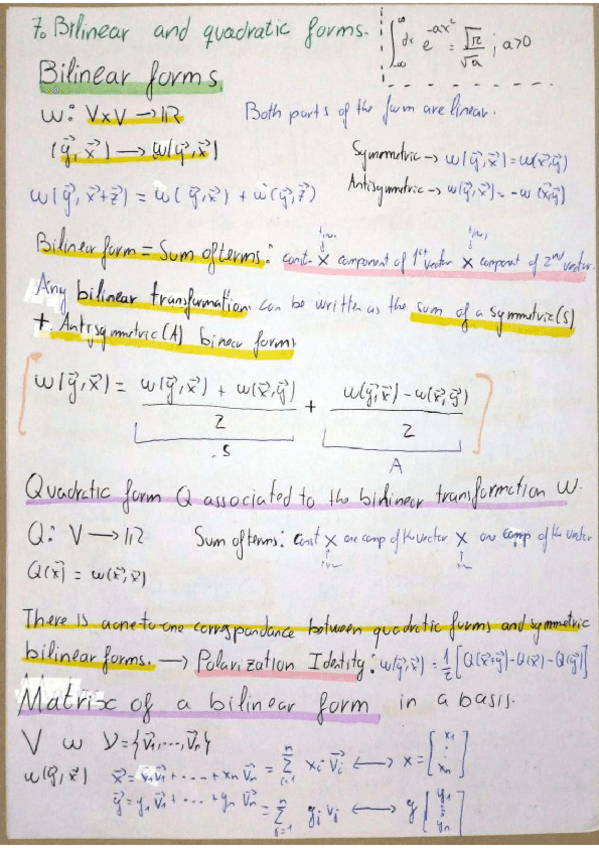 7. Bilinear and quadratic forms.
∫_{-∞}^{∞} dx e^{-ax²} = √π/√a ; a>0
Bilinear forms
w: V×V → IR
Both parts of the form are linear.
(y⃗, x⃗) → w(y⃗, x⃗)
Symmetric → w(y⃗, x⃗) = w(x⃗, y⃗)
Antisymmetric → w(y⃗, x⃗) = - w(x⃗, y⃗)
w(y⃗, x⃗+z⃗) = w(y⃗, x⃗) + w(y⃗, z⃗)
Bilinear form = Sum of terms: const. × component of 1st vector × component of 2nd vector.
Any bilinear transformation can be written as the sum of a symmetric(S)
+ Antisymmetric(A) binear form
w(y⃗, x⃗) = (w(y⃗, x⃗) + w(x⃗, y⃗))/2 + (w(y⃗, x⃗) - w(x⃗, y⃗))/2
S
A
Quadratic form Q associated to the bilinear transformation w.
Q: V → IR Sum of terms: const × one comp of the vector × one comp of the vector
Q(x⃗) = w(x⃗, x⃗)
There is a one to one correspondance between quadratic forms and symmetric
bilinear forms. → Polarization Identity: w(y⃗, x⃗) = 1/2 [Q(x⃗+y⃗) - Q(x⃗) - Q(y⃗)]
Matrix of a bilinear form in a basis.
V w V = {v⃗1, ..., v⃗n}
w(y⃗, x⃗) x⃗ = x1 v⃗1 + .... + xn v⃗n = Σ_{i=1}^{n} xi v⃗i ⟷ x = [x1 ⋮ xn]
y⃗ = y1 v⃗1 + ... + yn v⃗n = Σ_{j=1}^{n} yj vj ⟷ y [y1 ⋮ yn]